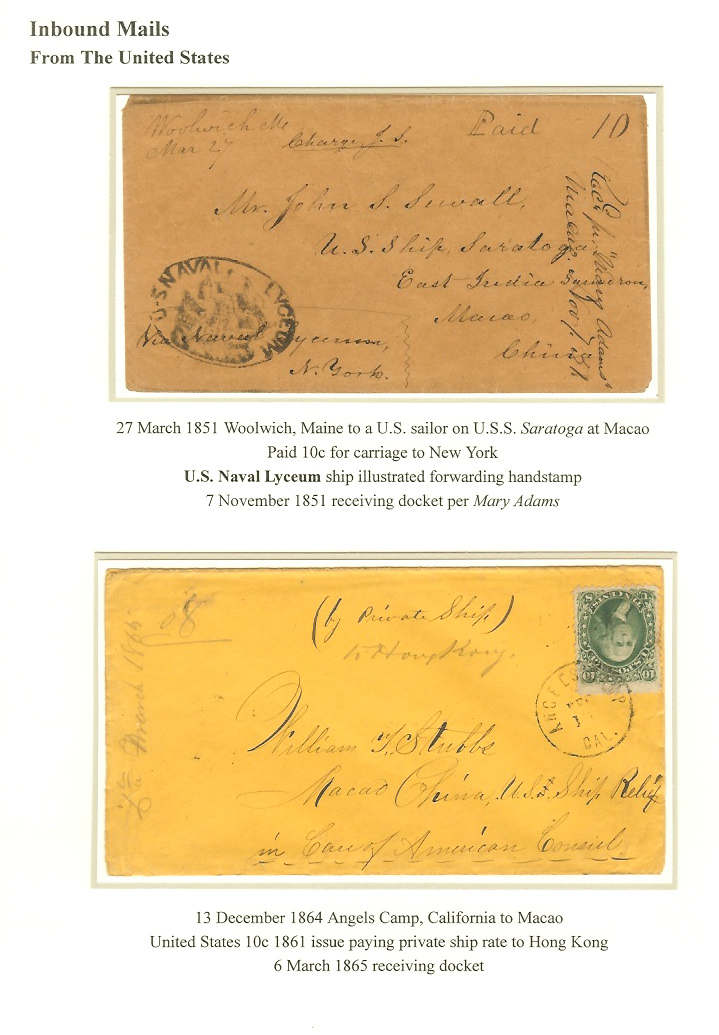 Inbound Mails
From The United States
Woolwich Me
Mar 27
Charge J. S.
Paid
10
Mr. John S. Sewall,
U.S. Ship, Saratoga
East India Squadron,
Macao,
China
Via Naval Lyceum,
N. York.
U.S NAVAL LYCEUM
Recd pr. "Mary Adams"
Macao Nov 7 1851
27 March 1851 Woolwich, Maine to a U.S. sailor on U.S.S. Saratoga at Macao
Paid 10c for carriage to New York
U.S. Naval Lyceum ship illustrated forwarding handstamp
7 November 1851 receiving docket per Mary Adams
(by Private Ship)
to Hong Kong.
William T. Stubbs
Macao China, U.S. Ship Relief
in Care of American Consul.
March 1865
ANGELS
CAL.
13 December 1864 Angels Camp, California to Macao
United States 10c 1861 issue paying private ship rate to Hong Kong
6 March 1865 receiving docket